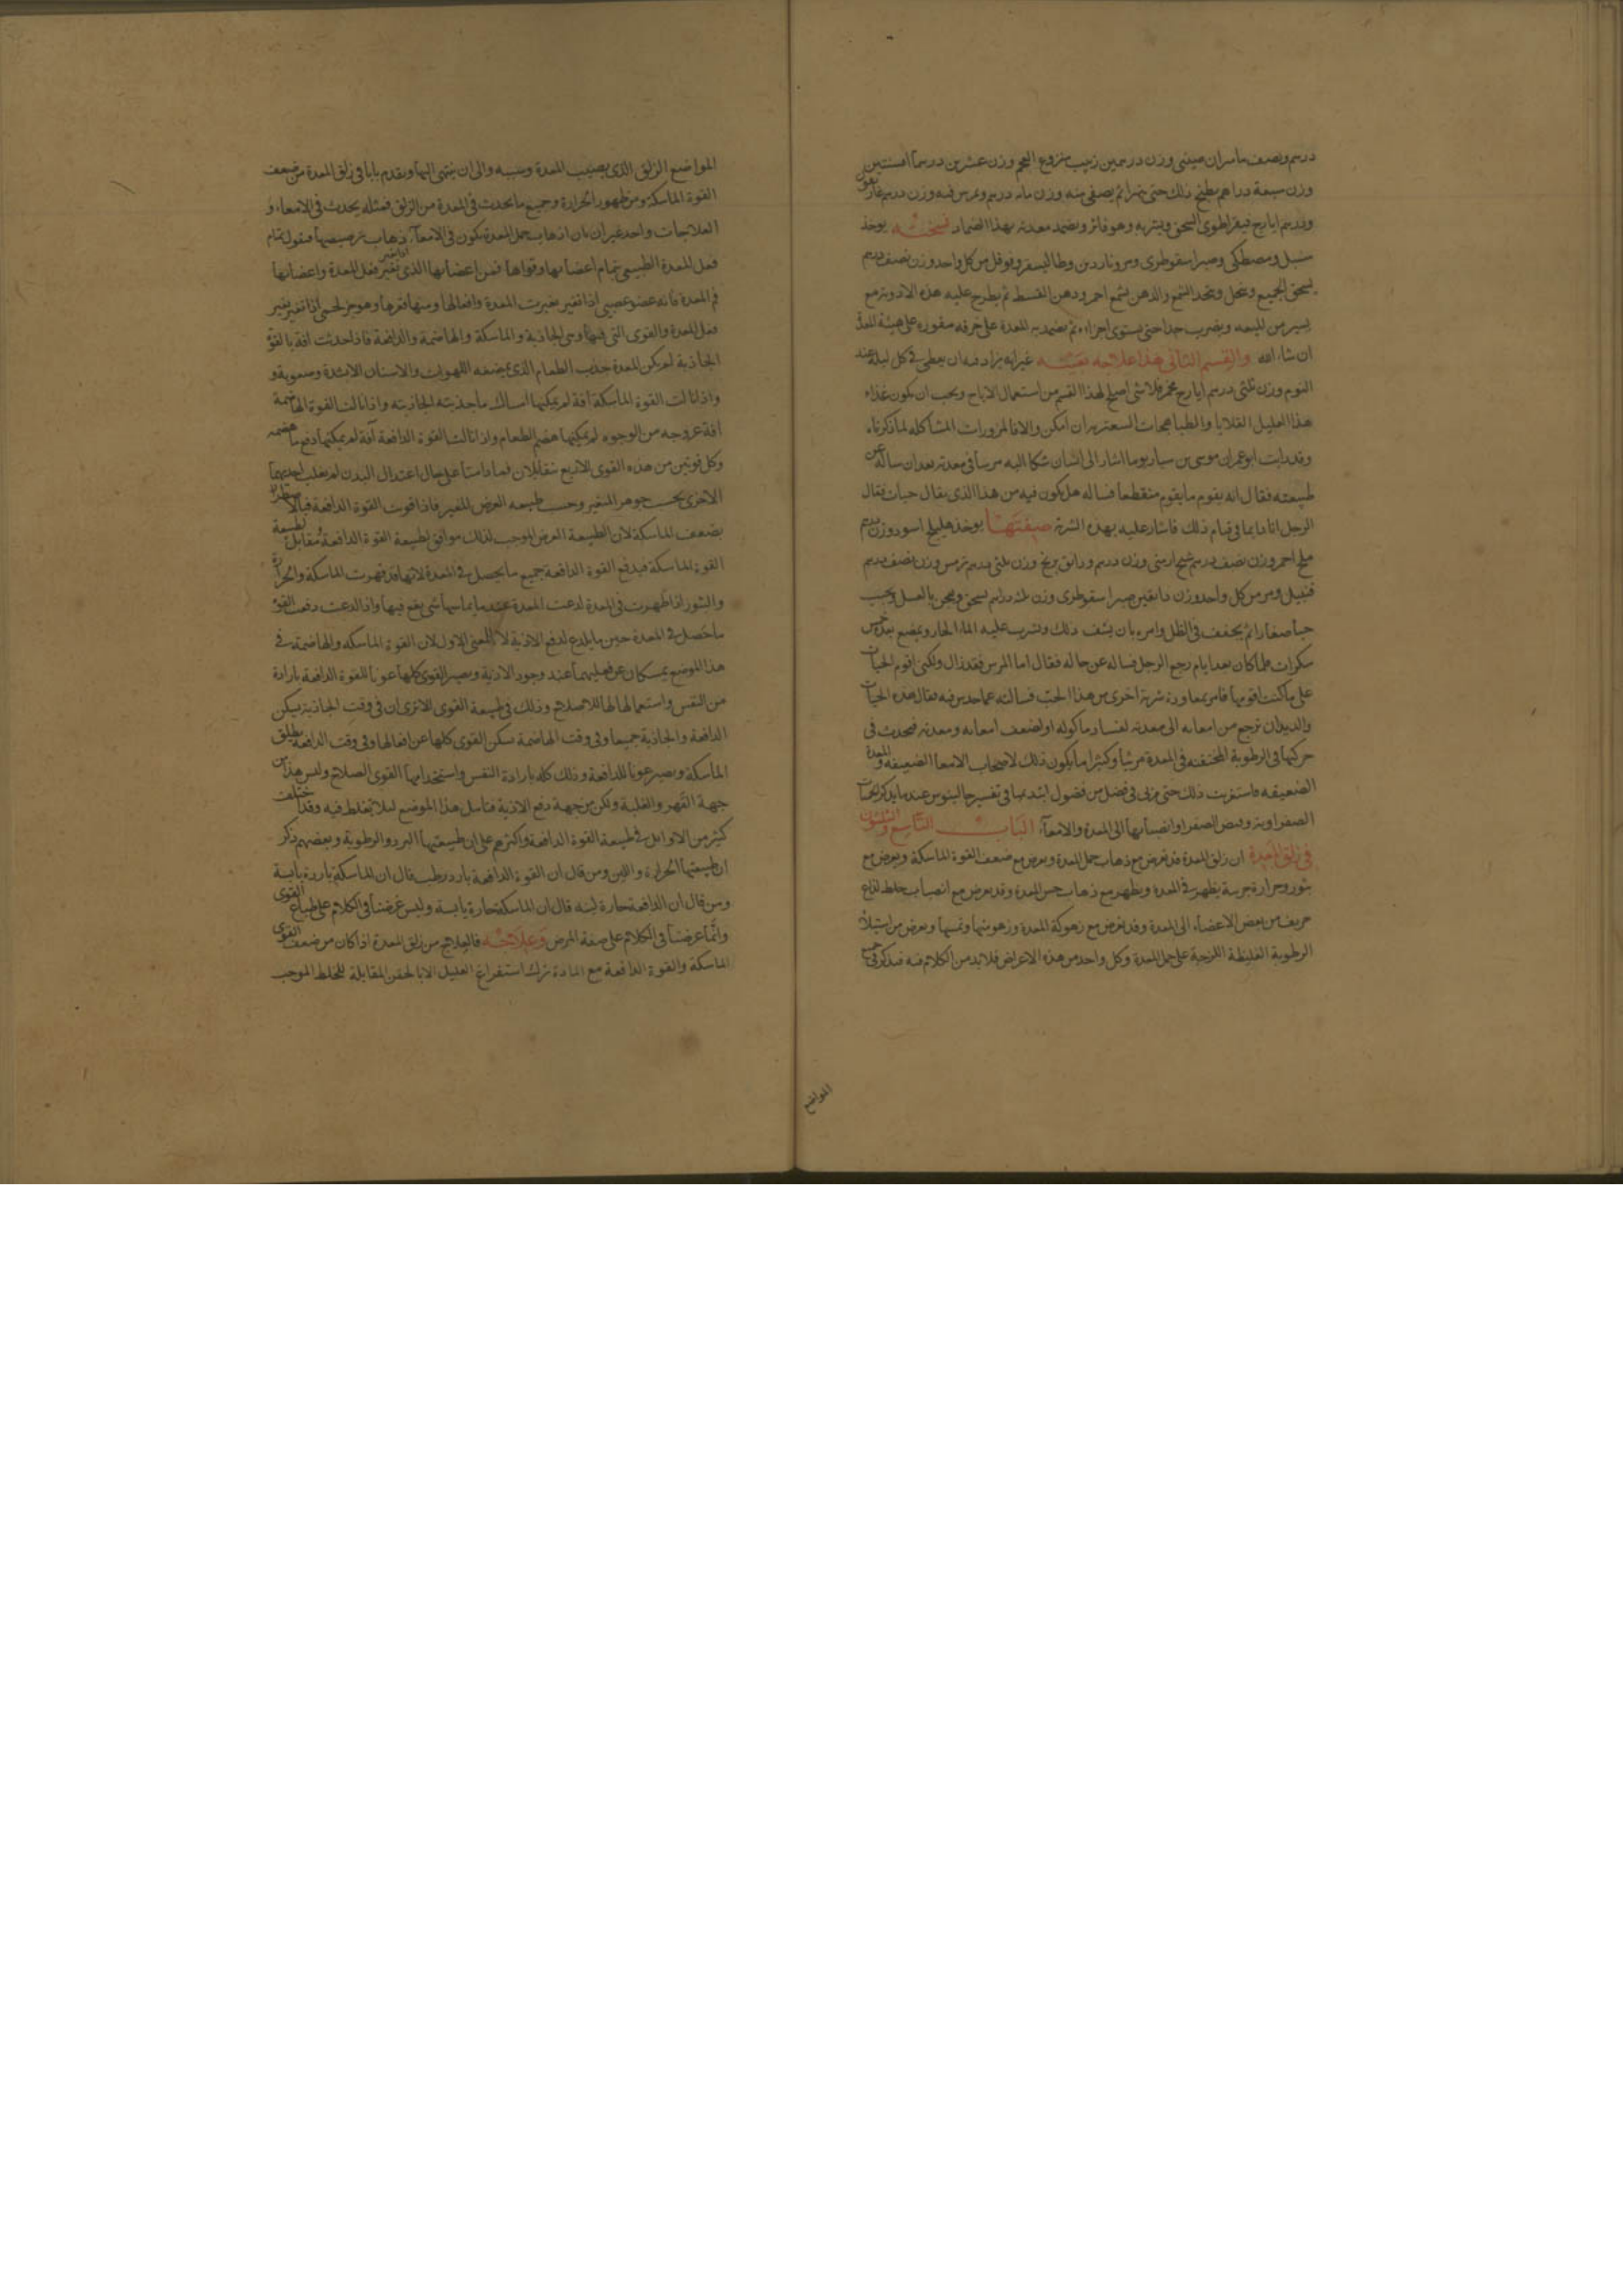 درهم ونصف ماميران صيني وزن درهمين زبيب منزوع العجم وزن عشرين درهما افسنتين
وزن سبعة دراهم يطبخ ذلك حتى يتهرا ثم يصفى منه وزن مائه درهم ويمرس فيه وزن درهم غاريقون
ودرهم ايارج فيقرا يطوى السحق ويشربه وهو فاتر ويضمد معدته بهذا الضماد نسخته يوخذ
سنبل ومصطكى وصبر اسقوطرى ومر وناردين وطاليسفر وفوفل من كل واحد وزن نصف درهم
يسحق الجميع وينخل ويتخذ الشمع والدهن بشمع احمر ودهن القسط ثم يطرح عليه هذه الادويه مع
يسير من الميعه ويضرب جدا حتى يستوى اجزاءه ثم يضمد به المعدة على خرقه مقوره على هيئة المعدة
ان شاء الله والقسم الثاني هذا علاجه بعينه غير انه يزاد فيه ان يعطى في كل ليلة عند
النوم وزن ثلثي درهم ايارج مخمر فلا شى اصلح لهذا القسم من استعمال الايارج ويجب ان يكون غذاء
هذا العليل القلايا والطباهجات السعتريه ان امكن والا فالمزورات المشاكله لما ذكرناه
وقد رايت ابو عمران موسى بن سيار يوما اشار الى انسان شكا اليه مرسا في معدته بعد ان ساله عن
طبيعته فقال انه يقوم ما يقوم منقطعا فساله هل يكون فيه من هذا الذي يقال حيات فقال
الرجل انا دايما في قيام ذلك فاشار عليه بهذه الشربة صفتها يوخذ هليلج اسود وزن درهم
ملح احمر وزن نصف درهم شيح ارمنى وزن درهم ودانق برنج وزن ثلثى درهم ترمس وزن نصف درهم
قنبيل ومر من كل واحد وزن دانقين صبر اسقوطرى وزن ثلثه دراهم يسحق ويعجن بالعسل ويحبب
حبا صغارا ثم يجفف في الظل وامره بان يشف ذلك ويشرب عليه الماء الحار ويمضغ بعده خمس
سكرات فلما كان بعد ايام رجع الرجل فساله عن حاله فقال اما المرس فقد زال ولكنى اقوم الحيات
على ما كنت اقومها فامر بمعاودة شربة اخرى من هذا الحب فسالته عما حدس فيه فقال هذه الحيات
والديدان ترجع من امعائه الى معدته لفساد ماكوله او لضعف امعائه ومعدته فيحدث في
حركتها في الرطوبة المختنقه في المعدة مرسا وكثيرا ما يكون ذلك لاصحاب الامعا الضعيفه والمعدة
الضعيفه فاستغربت ذلك حتى مر بى في فصل من فصول ابتديها في تفسير جالينوس عند ما يذكر الحيات
الصفراويه وفيض الصفرا وانصبابها الى المعدة والامعآء الباب التاسع والثلثون
في زلق المعدة ان زلق المعدة قد يعرض مع ذهاب خمل المعدة ويعرض مع ضعف القوة الماسكة ويعرض مع
بثور وحرارة جرسة يظهر في المعدة ويظهر مع ذهاب حس المعدة وقد يعرض مع انصباب خلط لذاع
حريف من بعض الاعضاء الى المعدة وقد يعرض مع زهوكة المعدة وزهومتها وغسها ويعرض من استيلآء
الرطوبة الغليظة اللزجة على خمل المعدة وكل واحد من هذه الاعراض فلا بد من الكلام فيه فيذكر في جميع
المواضع
المواضع الزلق الذي يصيب المعدة وسببه والى ان ينتهى اليها ونقدم بابا في زلق المعدة من ضعف
القوة الماسكة ومن ظهور الحرارة وجميع ما يحدث في المعدة من الزلق فمثله يحدث في الامعاء و
العلاجات واحد غير ان بان اذهاب خمل المعدة يكون في الامعآء ذهاب ترصيصها فنقول تمام
فعل المعدة الطبيعى بتمام اعضائها وقواها فمن اعضائها الذي اذا تغير تغير فعل المعدة واعضائها
فم المعدة فانه عضو عصبى اذا تغير تغيرت المعدة وافعالها ومنها قعرها وهو جزء لحمى اذا تغير تغير
فعل المعدة والقوى التي فيها وهى الجاذبة والماسكة والهاضمة والدافعة فاذا حدثت افة بالقوة
الجاذبة لم يكن للمعدة جذب الطعام الذي يمضغه اللهوات والاسنان الابشدة وصعوبة و
واذا نالت القوة الماسكة آفة لم يمكنها امساك ما جذبته الجاذبته واذا نالت القوة الهاضمة
افة عن وجه من الوجوه لم يمكنها هضم الطعام واذا نالت القوة الدافعة آفة لم يمكنها دفع ما هضمه
وكل قوتين من هذه القوى الاربع متقابلان فما دامتا على حال اعتدال البدن لم يغلب احديهما
الاخرى بحسب جوهر المتغير وحسب طبيعه العرض المغير فاذا قويت القوة الدافعة فبالاضطرار
يضعف الماسكة لان الطبيعة العرض الموجب لذلك موافق لطبيعة القوة الدافعة مقابل لطبيعة
القوة الماسكة فيدفع القوة الدافعة جميع ما يحصل في المعدة لانها قد قهرت الماسكة والحرارة
والبثور اذا ظهرت في المعدة لدعت المعدة عند ما يماسها شى يقع فيها واذا لدعت دفعت القوة
ما حصل في المعدة حين ما يلدع لدفع الاذية لا للمعنى الاول لان القوة الماسكه والهاضمة في
هذا الموضع يمسكان عن فعليهما عند وجود الاذية ويصير القوى كلها عونا للقوة الدافعة بارادة
من النفس واستعمالها لها للاصلاح وذلك في طبيعة القوى الا ترى ان في وقت الجاذبة يسكن
الدافعة والجاذبة جميعا وفي وقت الهاضمة يسكن القوى كلها عن افعالها وفي وقت الدافعة يطلق
الماسكة ويصير عونا للدافعة وذلك كله بارادة النفس واستخدامها القوى الصلاح وليس هذا من
جهة القهر والغلبة ولكن من جهة دفع الاذية فتامل هذا الموضع ليلا يغلط فيه وقد اختلف
كثير من الاوايل في طبيعة القوة الدافعة واكثرهم على ان طبيعتها البرد والرطوبة وبعضهم ذكر
ان طبيعتها الحرارة واللين ومن قال ان القوة الدافعة بارد رطب قال ان الماسكة باردة يابسة
ومن قال ان الدافعة حارة لينه قال ان الماسكة حارة يابسة وليس غرضنا في الكلام على طباع القوى
وانما غرضنا في الكلام على صفة المرض وعلاجه فالعلاج من زلق المعدة اذا كان من ضعف القوى
الماسكة والقوة الدافعة مع المادة ترك استفراغ العليل الا بالحقن المقابلة للخلط الموجب